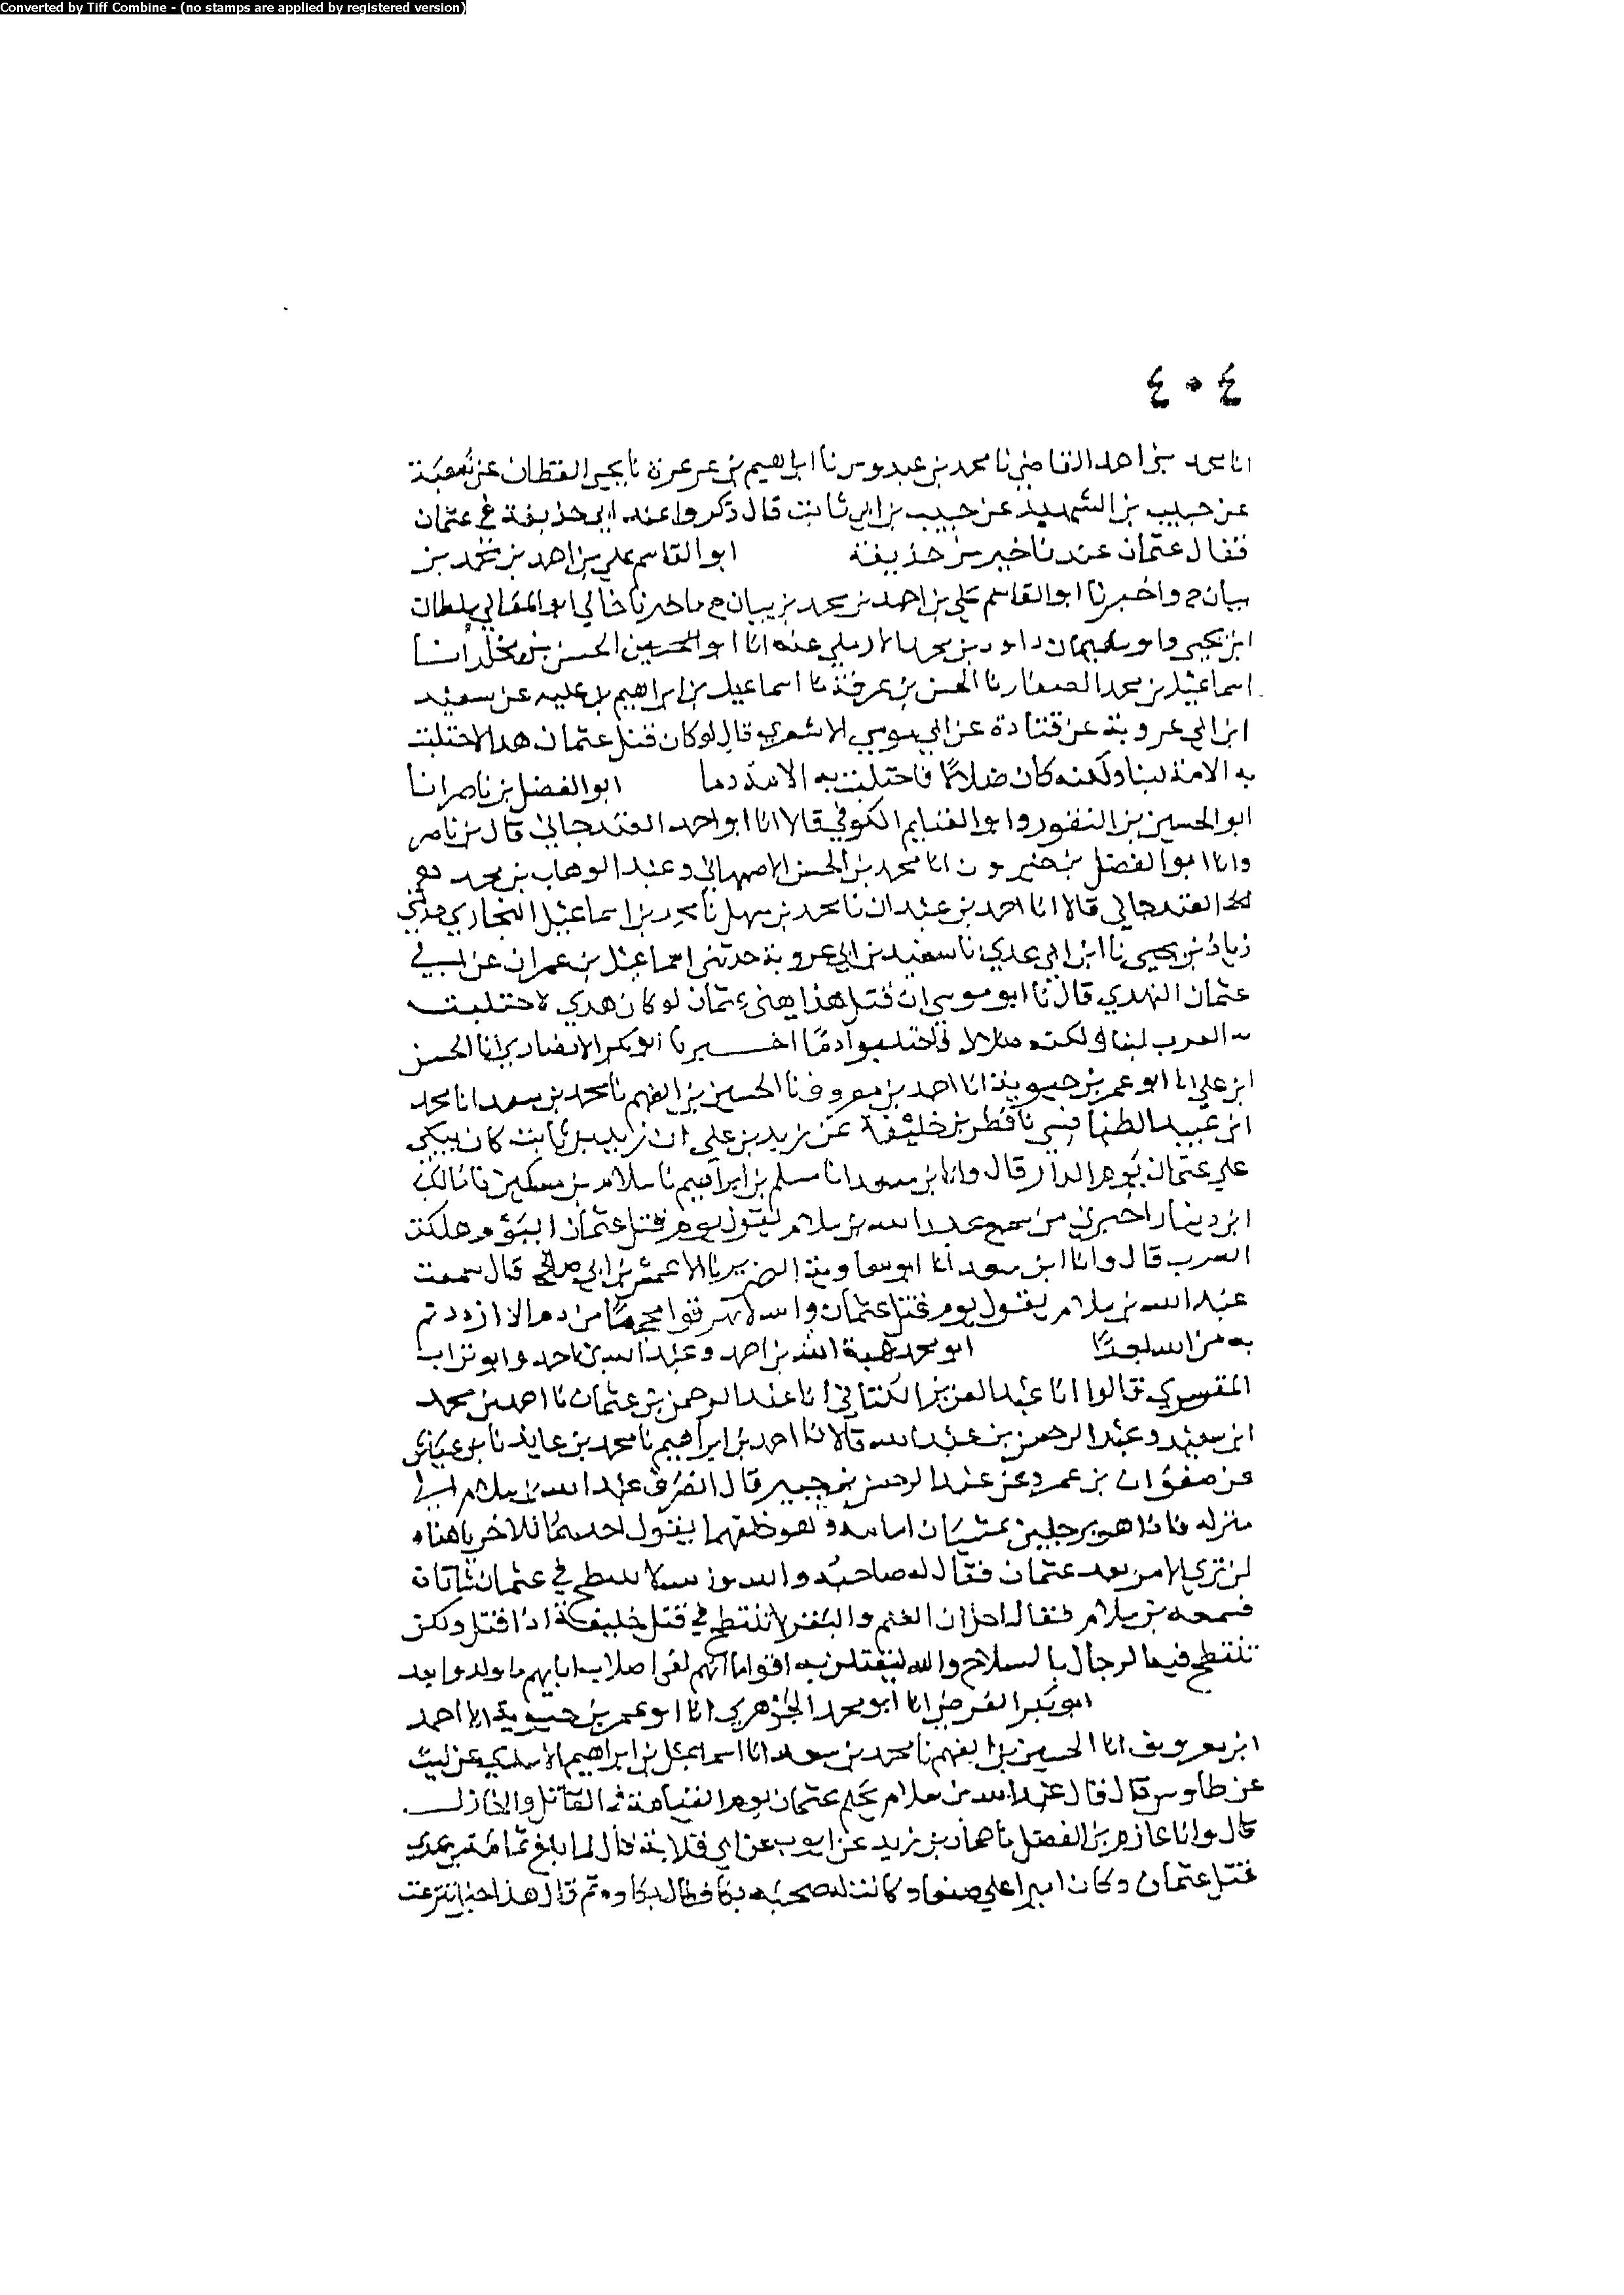 Converted by Tiff Combine - (no stamps are applied by registered version)
٤٠٤
انا محمد بن احمد القاضي نا محمد بن عبدوس نا ابراهيم بن عرعرة نا يحيى القطان عن شعبة
عن حبيب بن الشهيد عن حبيب بن ابي ثابت قال ذكروا عند ابي حذيفة في عثمان
فقال عثمان عندنا خير من حذيفة ابو القاسم علي بن احمد بن محمد بن
بيان ح واخبرنا ابو القاسم علي بن احمد بن محمد بن بيان ح ما خبرنا خالي ابو المعالي سلطان
ابن يحيى وابو سليمان داود بن محمد الاربلي عنه انا ابو الحسين الحسن بن مخلد انا
اسماعيل بن محمد الصفار نا الحسن بن عرفة نا اسماعيل بن ابراهيم بن علية عن سعيد
ابن ابي عروبة عن قتادة عن ابي موسى الاشعري قال لو كان قتل عثمان هدا لاحتلبت
به الامة لبنا ولكنه كان ضلالا فاحتلبت به الامة دما ابو الفضل بن ناصر انا
ابو الحسين بن النقور وابو الغنايم الكوفي قالا انا ابو احمد الغندجاني قال بن ناصر
وانا ابو الفضل بن خيرون انا محمد بن الحسن الاصبهاني وعبد الوهاب بن محمد
الغندجاني قالا انا احمد بن عبدان نا محمد بن سهل نا محمد بن اسماعيل البخاري حدثني
زياد بن يحيى نا ابن ابي عدي نا سعيد بن ابي عروبة حدثني اسماعيل بن عمران عن ابي
عثمان النهدي قال نا ابو موسى ان قتل هذا يعني عثمان لو كان هدي لاحتلبت
به العرب لبنا ولكنه ضلالا فاحتلبوا دما اخبرنا ابو بكر الانصاري انا الحسن
ابن علي انا ابو عمر بن حيوية انا احمد بن معروف نا الحسين بن الفهم نا محمد بن سعد انا محمد
ابن عبيد الطنافسي نا فطر بن خليفة عن زيد بن علي ان زيد بن ثابت كان يبكي
علي عثمان يوم الدار قال وانا بن سعد انا مسلم بن ابراهيم نا سلام بن مسكين نا مالك
ابن دينار اخبرني من سمع عبد الله بن سلام يقول يوم قتل عثمان اليوم هلكت
العرب قال وانا ابن سعد انا ابو معاوية الضرير نا الاعمش بن ابي صالح قال سمعت
عبد الله بن سلام يقول يوم قتل عثمان والله لا تهرقوا محجما من دم الا ازددتم
به من الله بعدا ابو محمد هبة الله بن احمد وعبد الله بن احمد وابو تراب
المقري قالوا انا عبد العزيز الكتاني انا عبد الرحمن بن عثمان نا احمد بن محمد
ابن سعيد وعبد الرحمن بن عبد الله قالا نا احمد بن ابراهيم نا محمد بن عايذ نا بن عياش
عن صفوان بن عمرو عن عبد الرحمن بن جبير قال انصرف عبد الله بن سلام الى
منزله فاذا هو برجلين يمشيان امامه وهو خلفهما يقول احدهما للاخر يا هناه
لن ترى الامر بعد عثمان فقال له صاحبه والله لا ينتطح في عثمان شاتان
فسمعه بن سلام فقال اجل ان الغنم والبقر لا تنتطح في قتل خليفة اذا قتل ولكن
تنتطح فيه الرجال بالسلاح والله ليقتلن به اقواما انهم لفي اصلاب ابايهم ما ولدوا بعد
ابو بكر الفرضي انا ابو محمد الجوهري انا ابو عمر بن حيوية انا احمد
ابن معروف انا الحسين بن الفهم نا محمد بن سعد انا اسماعيل بن ابراهيم الاسدي عن ليث
عن طاوس قال قال عبد الله بن سلام يحكم عثمان يوم القيامة في القاتل والخاذل
قال وانا عازم بن الفضل نا حماد بن زيد عن ايوب عن ابي قلابة قال لما بلغ ثمامة بن عدي
قتل عثمان وكان اميرا على صنعاء وكانت له صحبة بكا فطال بكاوه ثم قال هذا حين انتزعت